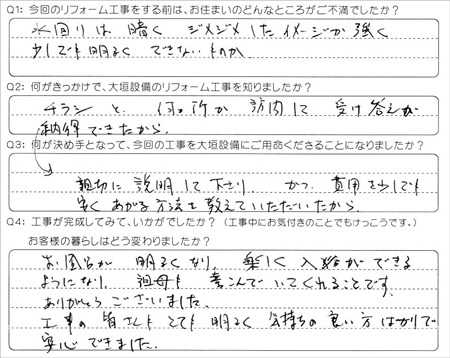 Q1: 今回のリフォーム工事をする前は、お住まいのどんなところがご不満でしたか？
水回りは 暗く ジメジメしたイメージが強く
少しでも明るく できないものか
Q2: 何がきっかけで、大垣設備のリフォーム工事を知りましたか？
チラシと、 何ヶ所か 訪問して 受け答えが
納得できたから。
Q3: 何が決め手となって、今回の工事を大垣設備にご用命くださることになりましたか？
親切に 説明して下さり、 かつ 費用を少しでも
安く あがる方法を教えていただいたから。
Q4: 工事が完成してみて、いかがでしたか？（工事中にお気付きのことでもけっこうです。）
お客様の暮らしはどう変わりましたか？
お風呂が 明るくなり、 楽しく 入浴ができる
ようになり、 祖母も 喜んで いてくれることです。
ありがとう ございました。
工事の 皆さんも とても 明るく 気持ちの良い方ばかりで
安心 できました。